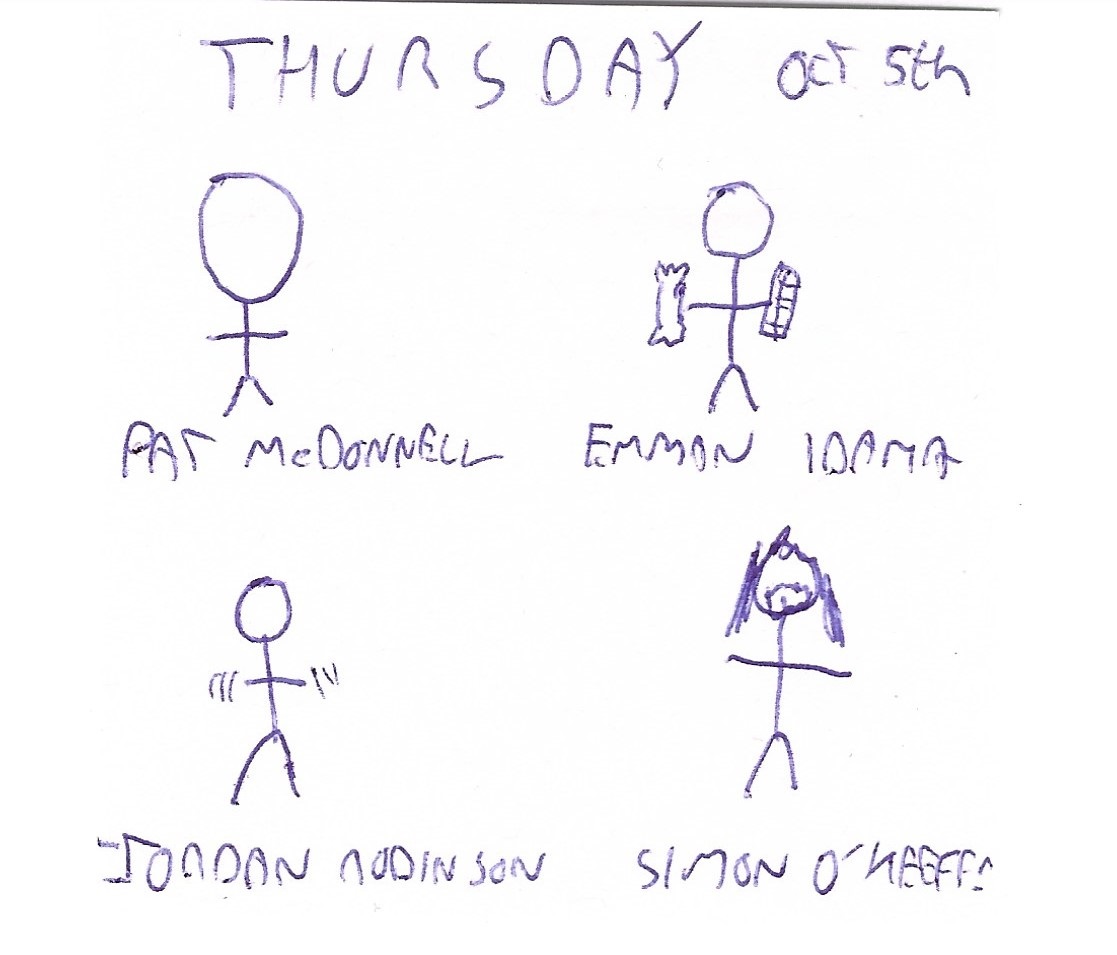 THURSDAY OCT 5th
PAT McDONNELL EMMAN IDAMA
JORDAN ROBINSON SIMON O'KEEFFE